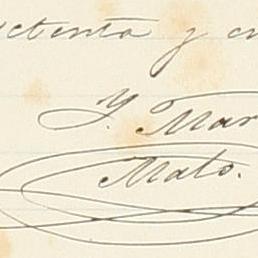 setenta y cu
Y. Mar
Mato.